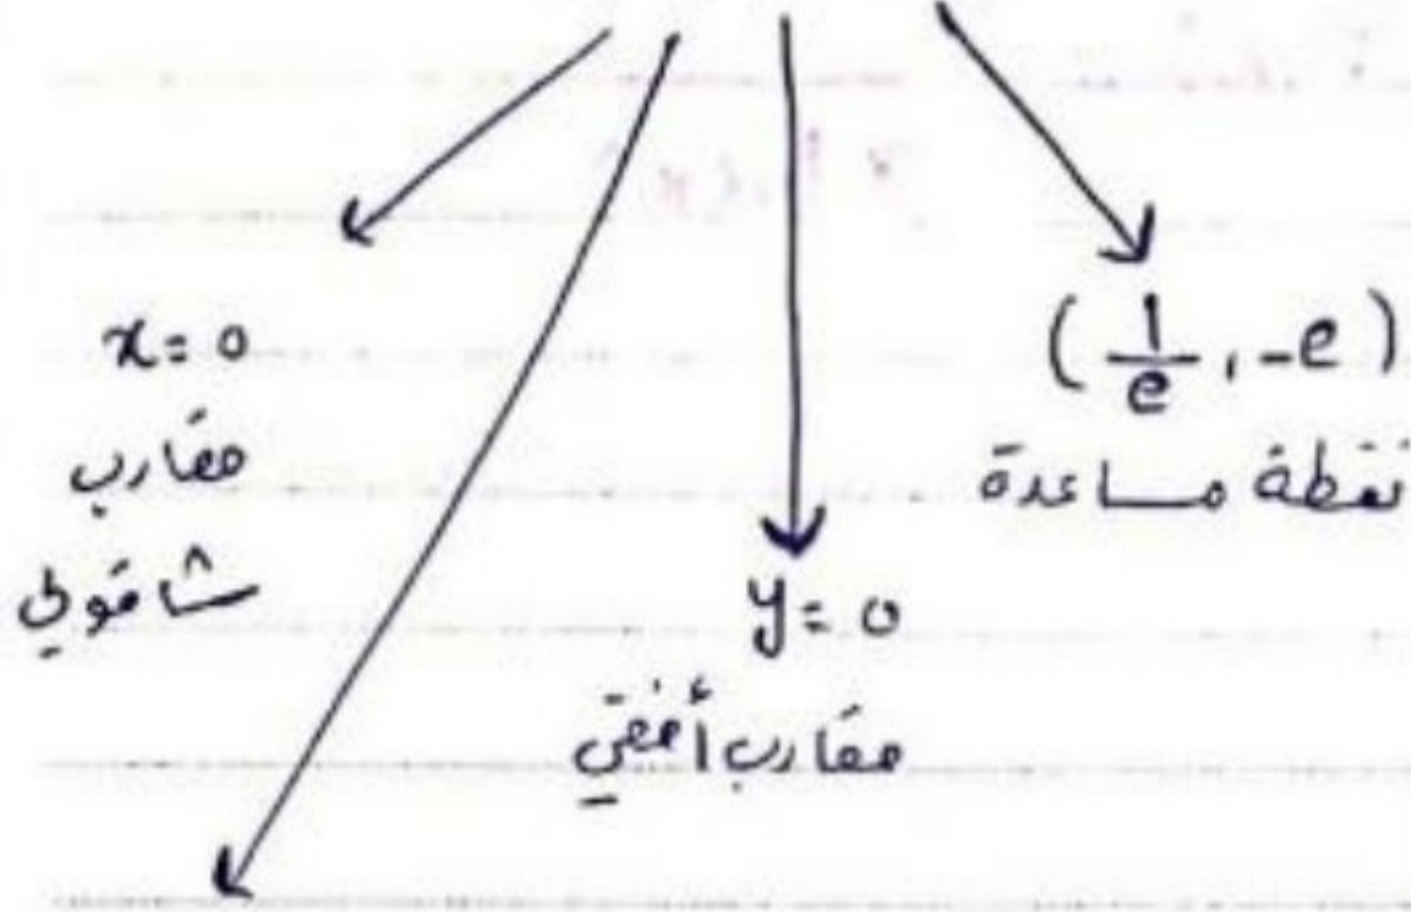 x = 0
مقارب
شاقولي
y = 0
مقارب أفقي
( 1/e , -e )
نقطة مساعدة